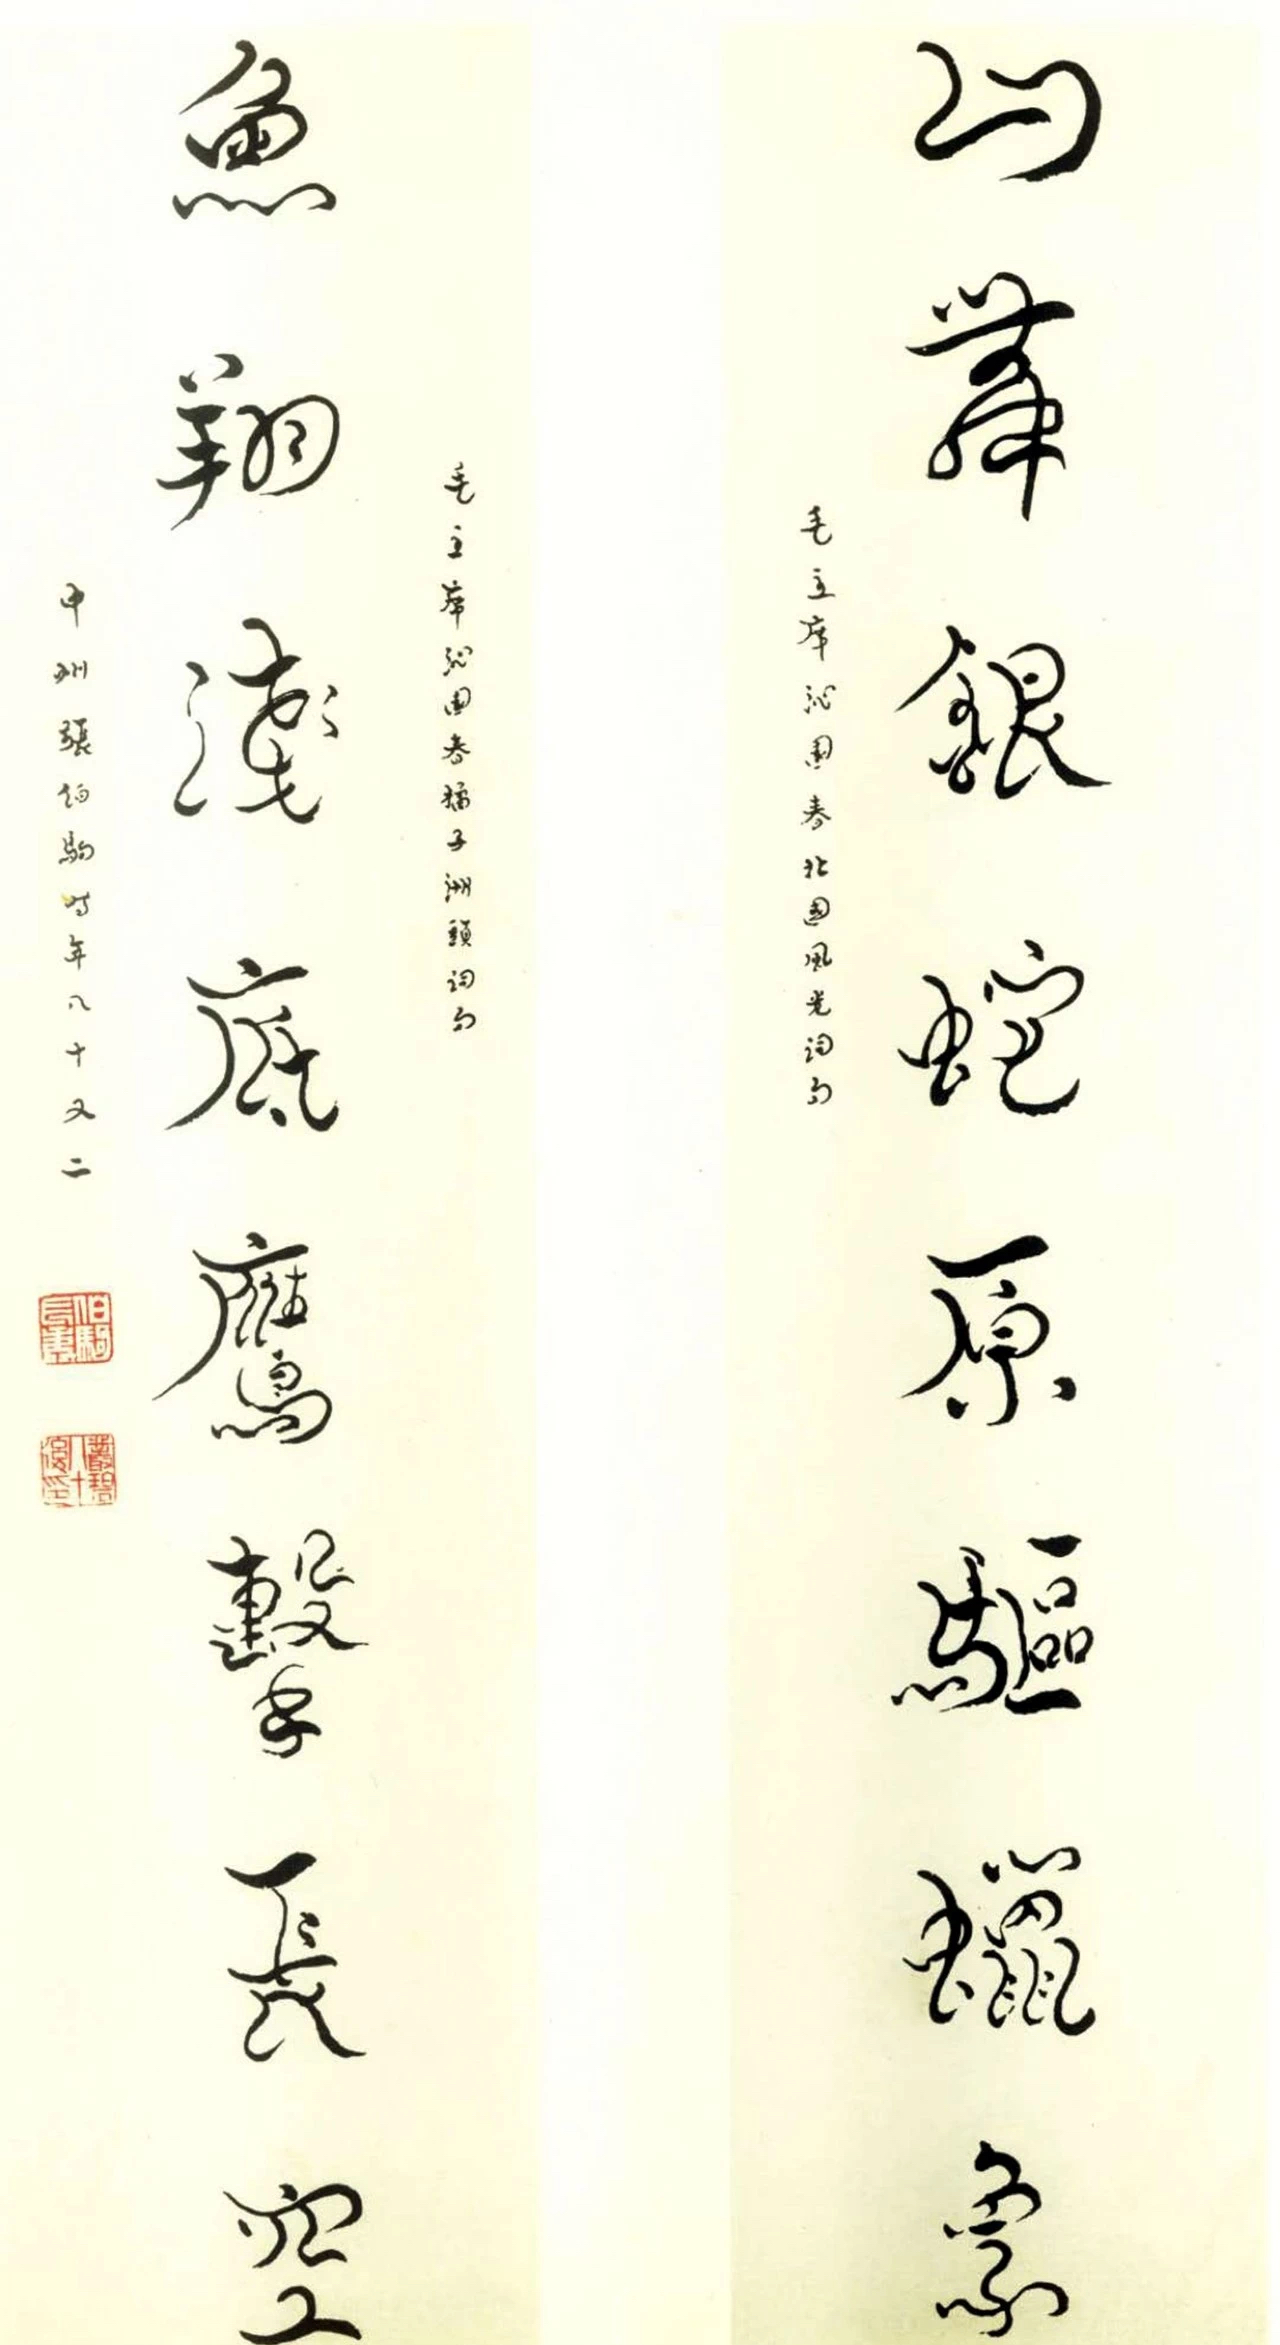 山舞銀蛇原驅蠟象
毛主席沁園春北國風光詞句
毛主席沁園春橘子洲頭詞句
魚翔淺底鷹擊長空
中州張伯駒時年八十又二
伯駒長壽
叢碧八十後印